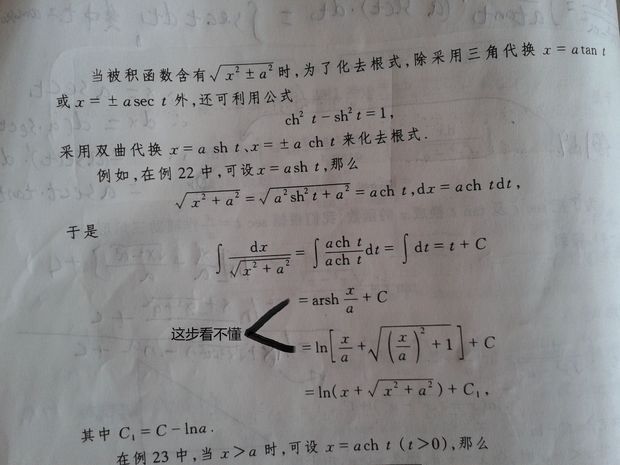 当被积函数含有√(x² ± a²) 时,为了化去根式,除采用三角代换 x = a tan t
或 x = ± a sec t 外,还可利用公式
ch² t − sh² t = 1,
采用双曲代换 x = a sh t、x = ± a ch t 来化去根式.
例如,在例 22 中,可设 x = a sh t,那么
√(x² + a²) = √(a² sh² t + a²) = a ch t, dx = a ch t dt,
于是
∫ dx/√(x² + a²) = ∫ (a ch t)/(a ch t) dt = ∫ dt = t + C
= arsh x/a + C
这步看不懂
= ln[x/a + √((x/a)² + 1)] + C
= ln(x + √(x² + a²)) + C₁,
其中 C₁ = C − ln a.
在例 23 中,当 x > a 时,可设 x = a ch t (t > 0),那么